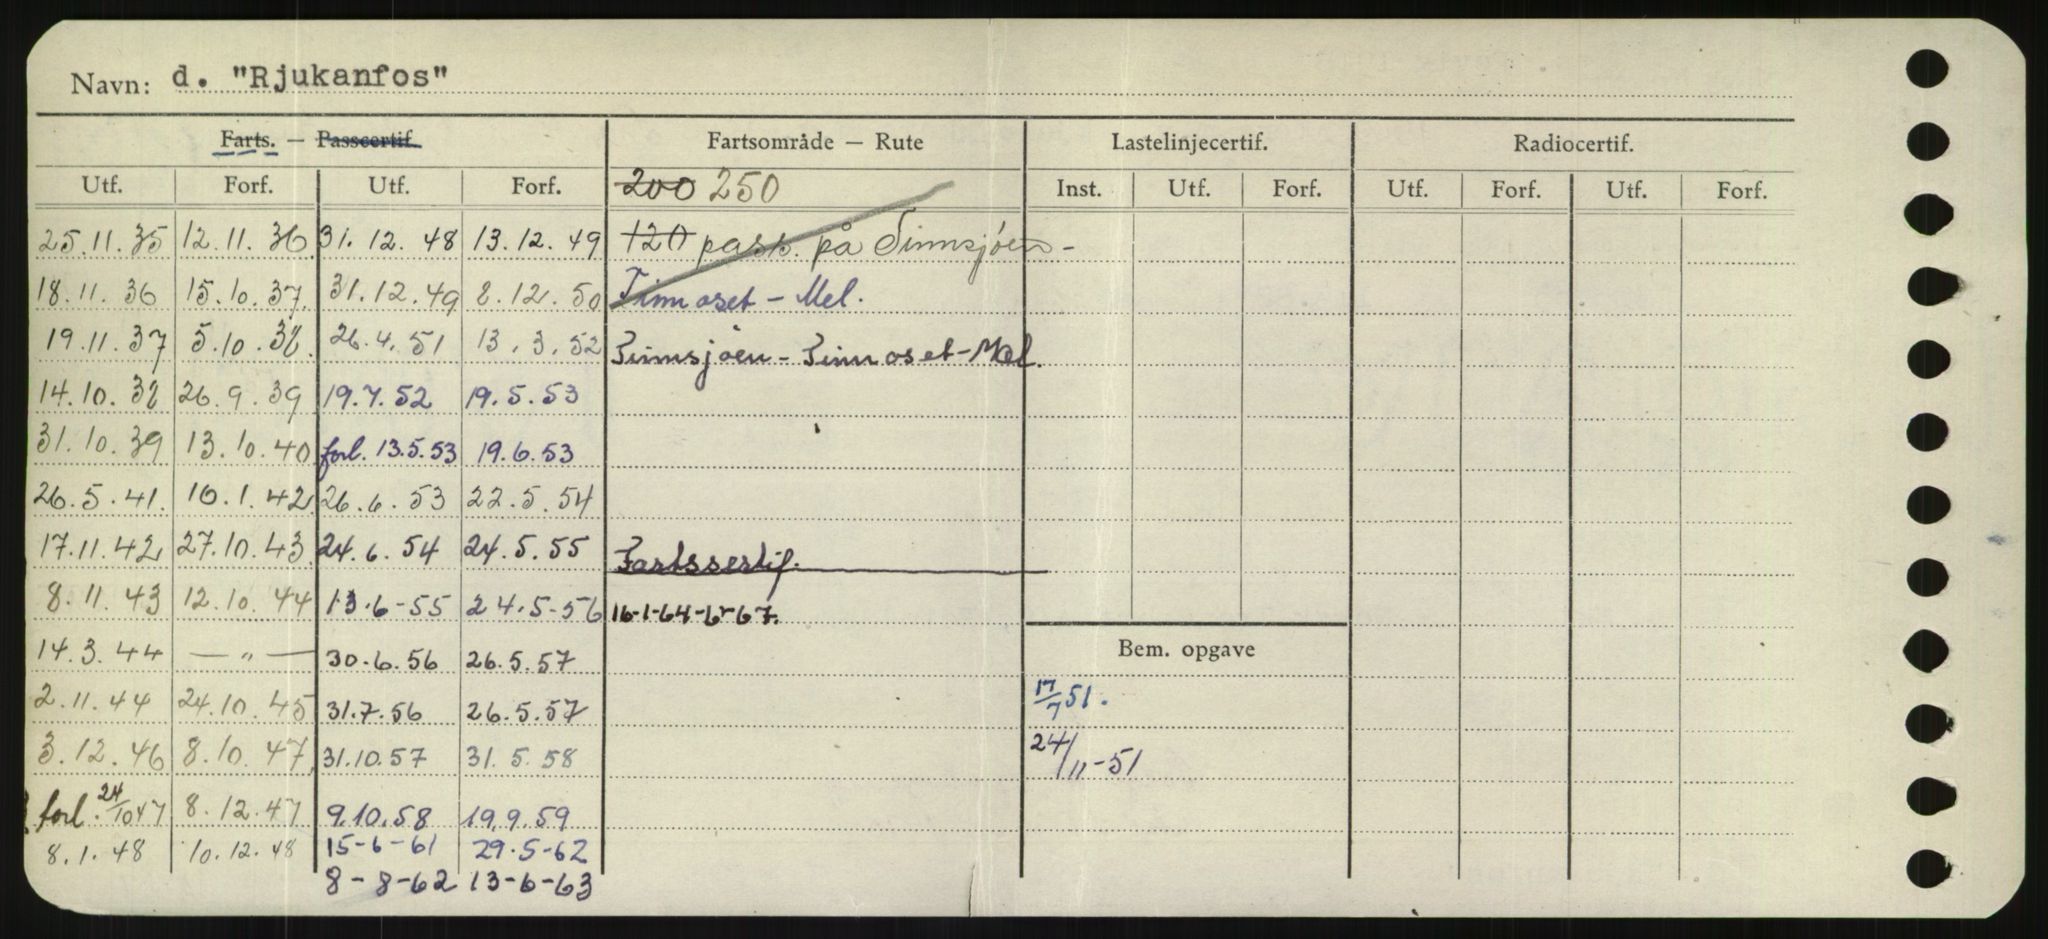 Navn: d. "Rjukanfos"
Farts. — Passcertif. Fartsområde — Rute Lastelinjecertif. Radiocertif.
Utf. Forf. Utf. Forf. 200 250 Inst. Utf. Forf. Utf. Forf. Utf. Forf.
25.11.35 12.11.36 31.12.48 13.12.49 120 pass. på Tinnsjøen-
18.11.36 15.10.37. 31.12.49 8.12.50 Tinnoset - Mel.
19.11.37 5.10.38. 26.4.51 13.3.52 Tinnsjøen - Tinnoset-Mel.
14.10.38 26.9.39 19.7.52 19.5.53
31.10.39 13.10.40 forl. 13.5.53 19.6.53
26.5.41. 10.1.42. 26.6.53 22.5.54
17.11.42 27.10.43 24.6.54 24.5.55 Fartssertif.
8.11.43 12.10.44 13.6-55 24.5-56 16-1-64-6-67.
14.3.44 — " — 30.6.56 26.5.57 Bem. opgave
2.11.44 24.10.45 31.7.56 26.5.57 17/7 51.
3.12.46 8.10.47. 31.10.57 31.5.58 24/11-51
forl. 24/10 47 8.12.47 9.10.58 19.9.59
8.1.48 10.12.48 15-6-61 29.5-62
8-8-62 13-6-63